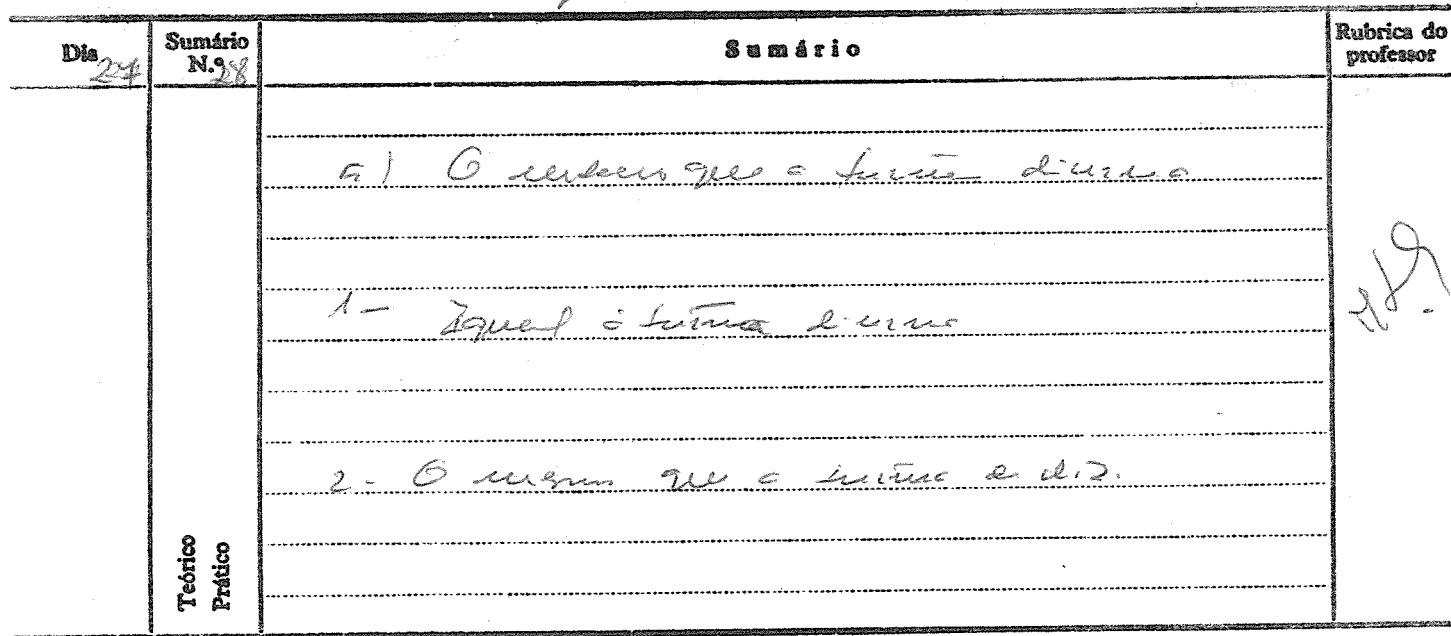 Dia 27
Sumário N.º 28
Sumário
Rubrica do professor
a) O mesmo que a turma diurna
1- Igual à turma diurna
2- O mesmo que a turma de dia.
Teórico
Prático